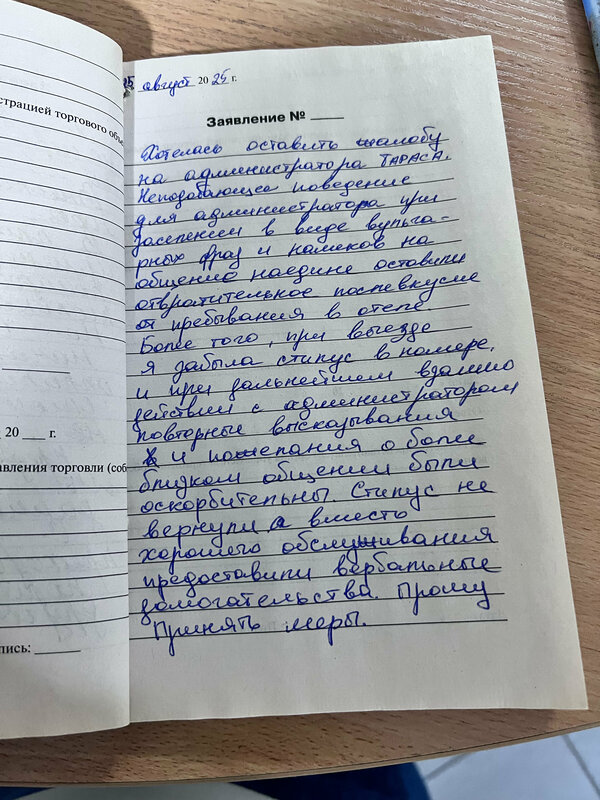 страцией торгового объе
20 ___ г.
авления торговли (соб
пись: ______
25 август 2025 г.
Заявление № ____
Хотелась оставить жалобу
на администратора ТАРАСА.
Неподобающее поведение
для администратора при
заселении в виде вульга-
рных фраз и намеков на
общение наедине оставили
отвратительное послевкусие
от пребывания в отеле.
Более того, при выезде
я забыла стилус в номере,
и при дальнейшем взаимо
действии с администратором
повторные высказывания
и пожелания о боле
близком общении были
оскорбительны. Стилус не
вернули, а вместо
хорошего обслуживания
предоставили вербальные
домогательства. Прошу
Принять меры.